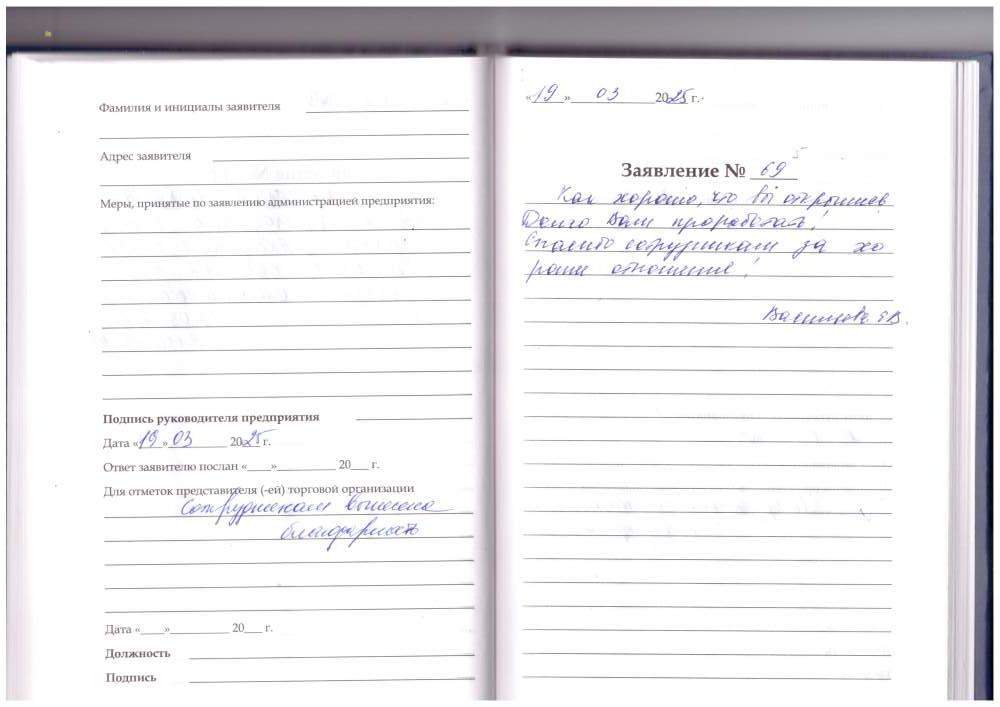 Фамилия и инициалы заявителя
Адрес заявителя
Меры, принятые по заявлению администрацией предприятия:
Подпись руководителя предприятия
Дата «19» 03 2025 г.
Ответ заявителю послан «____»__________ 20___ г.
Для отметок представителя (-ей) торговой организации
Сотрудникам вынесена
благодарность
Дата «____»__________ 20___ г.
Должность
Подпись
«19» 03 2025 г.
Заявление № 69
Как хорошо, что вы открылись
Долго Вам проработать!
Спасибо сотрудникам за хо
рошие отношение!